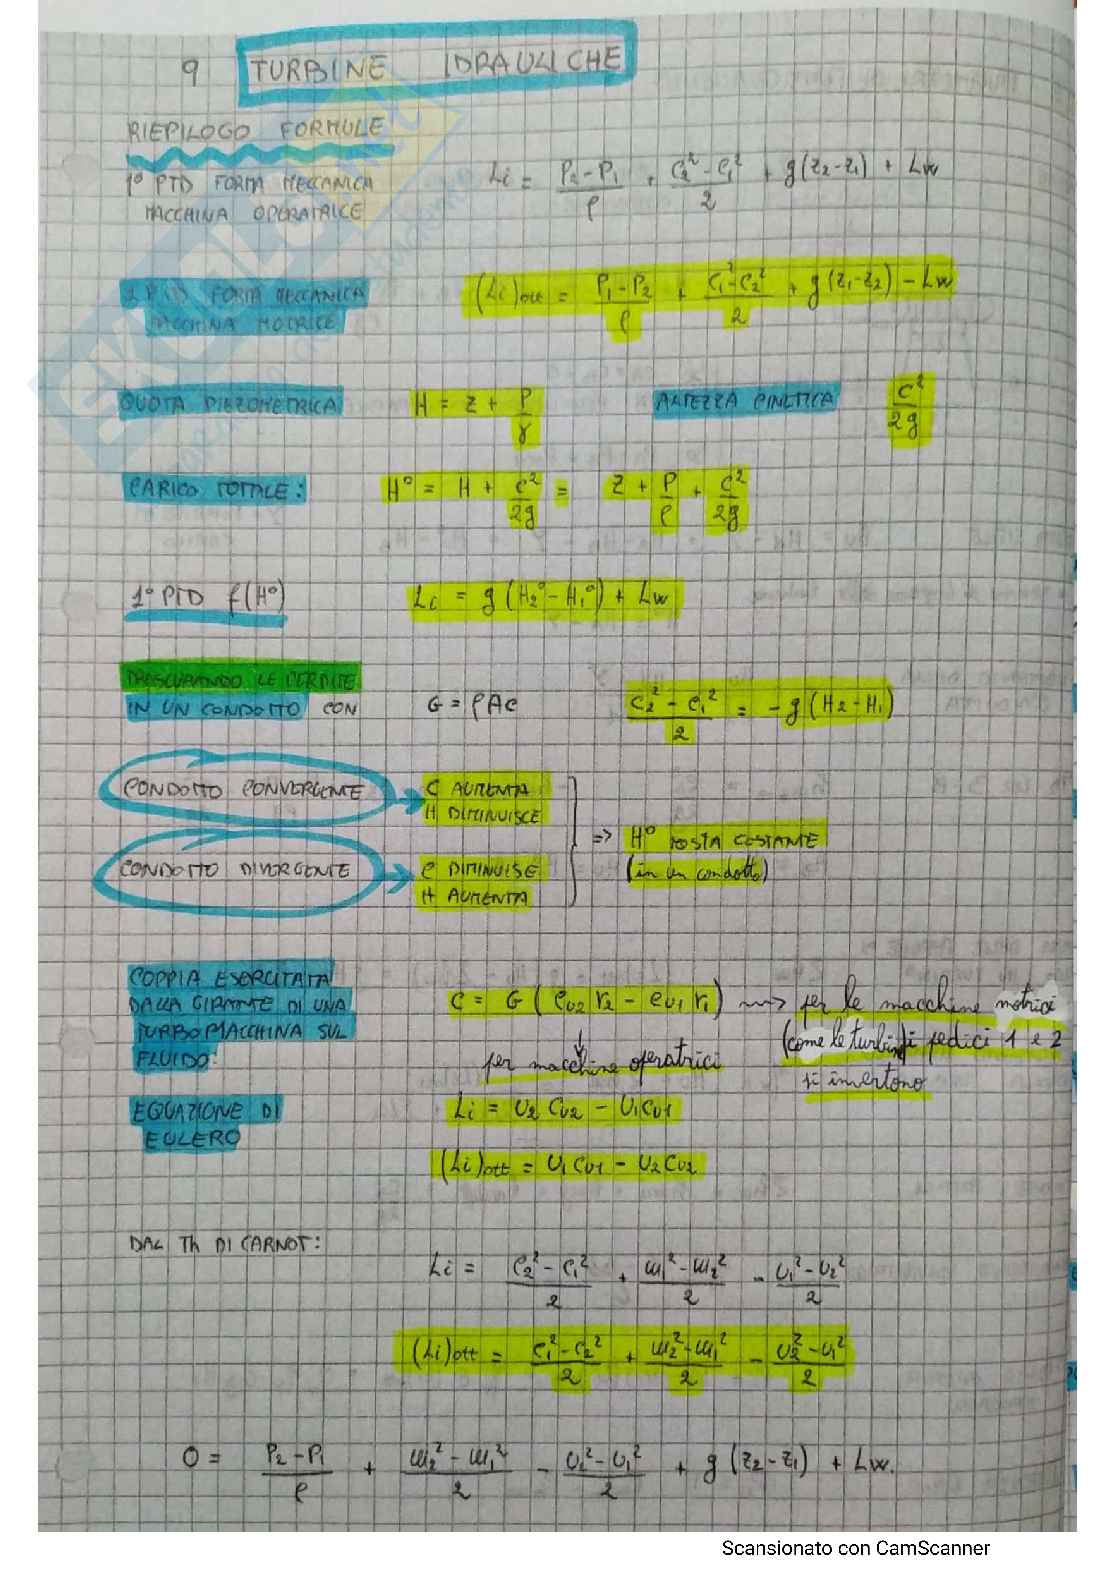 9 TURBINE IDRAULICHE
RIEPILOGO FORMULE
1° PTD FORMA MECCANICA
MACCHINA OPERATRICE
Li = P2-P1/ρ + C2²-C1²/2 + g(z2-z1) + Lw
1 PTD FORMA MECCANICA
MACCHINA MOTRICE
(Li)ott = P1-P2/ρ + C1²-C2²/2 + g(z1-z2) - Lw
QUOTA PIEZOMETRICA H = z + P/γ ALTEZZA CINETICA C²/2g
CARICO TOTALE: H° = H + C²/2g = Z + P/ρ + C²/2g
1° PTD f(H°) Li = g(H2° - H1°) + Lw
TRASCURANDO LE PERDITE
IN UN CONDOTTO CON G = ρAC C2²-C1²/2 = -g(H2-H1)
CONDOTTO CONVERGENTE → C AUMENTA
H DIMINUISCE
=> H° RESTA COSTANTE
(in un condotto)
CONDOTTO DIVERGENTE → C DIMINUISE
H AUMENTA
COPPIA ESERCITATA
DALLA GIRANTE DI UNA
TURBOMACCHINA SUL
FLUIDO:
C = G (CU2 r2 - CU1 r1) → per le macchine motrici
(come le turbine) i pedici 1 e 2
si invertono
per macchine operatrici
EQUAZIONE DI
EULERO
Li = U2 CU2 - U1CU1
(Li)ott = U1CU1 - U2CU2
DAL Th DI CARNOT:
Li = C2²-C1²/2 + W1²-W2²/2 - U1²-U2²/2
(Li)ott = C1²-C2²/2 + W2²-W1²/2 - U2²-U1²/2
0 = P2-P1/ρ + W2²-W1²/2 - U2²-U1²/2 + g(z2-z1) + Lw.
Scansionato con CamScanner